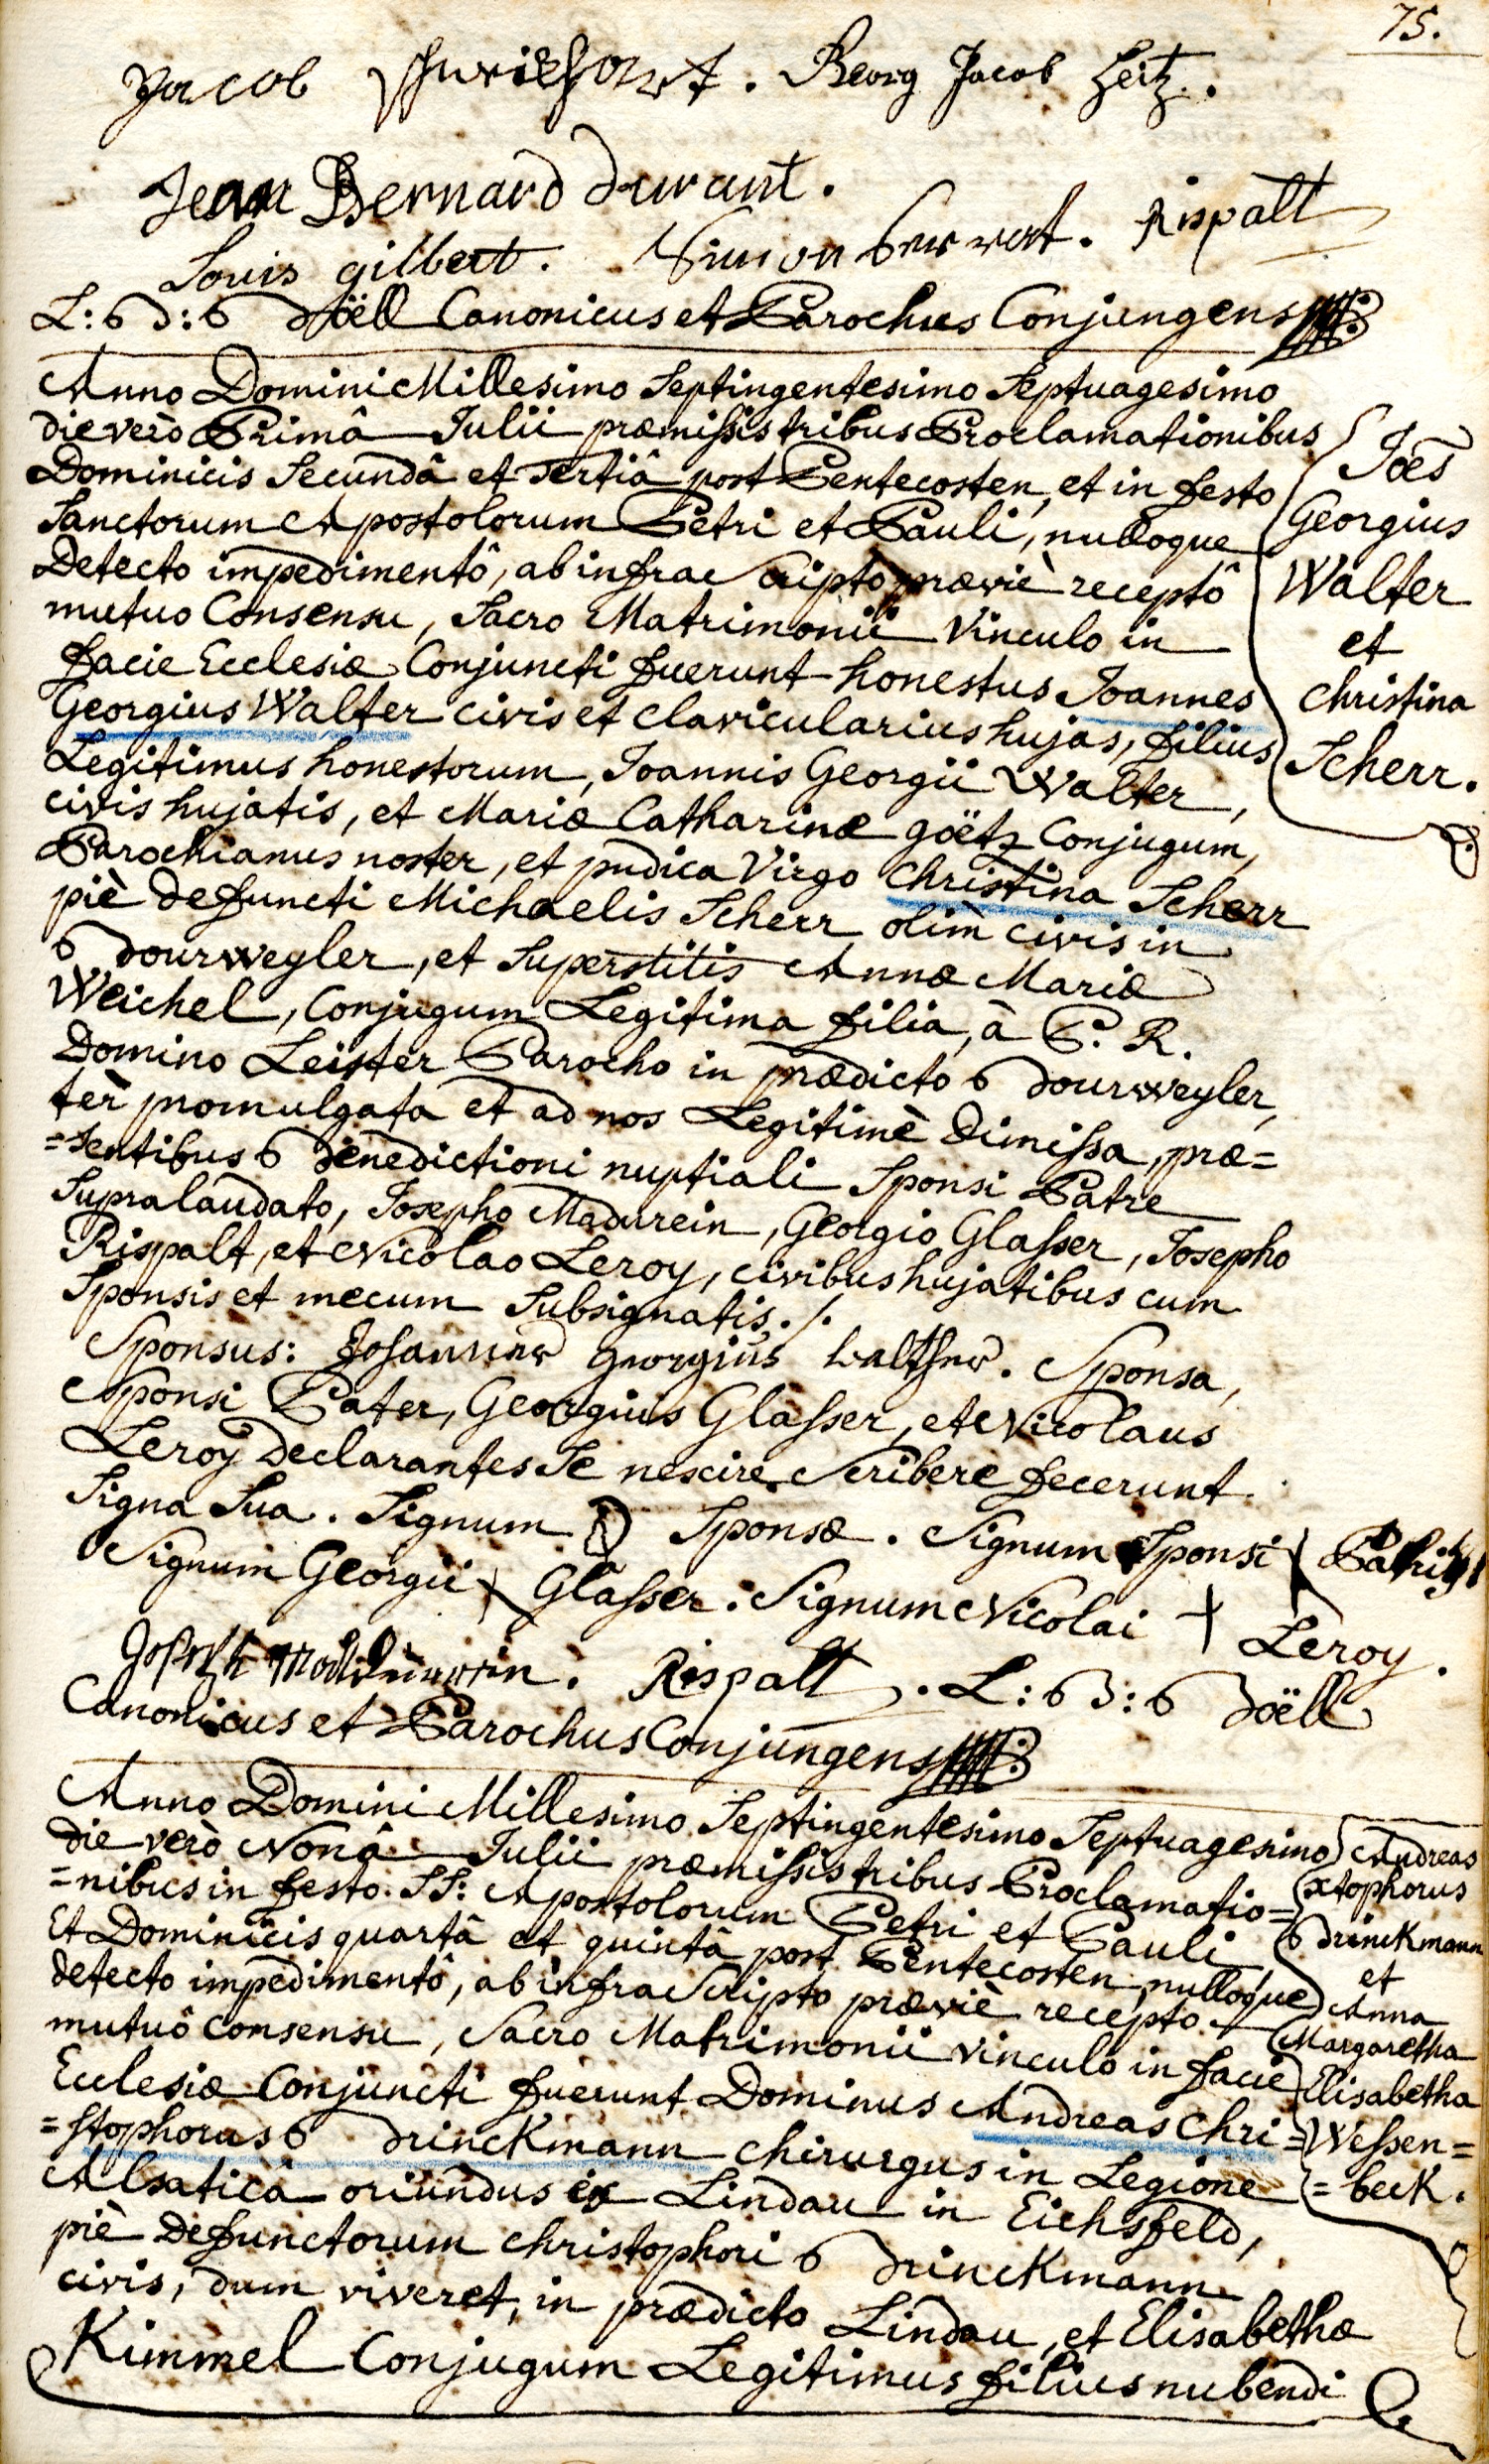 75.
Jacob Schweickart. Georg Jacob Heitz.
Jean Bernard durant.
Louis gilbert. Simon Rispalt
L: B: Böell Canonicus et Parochus Conjungens
Anno Domini Millesimo Septingentesimo Septuagesimo
die verò Primâ Julii præmissis tribus Proclamationibus
Dominicis Secundâ et tertiâ post Pentecosten, et in festo
Sanctorum Apostolorum Petri et Pauli, nulloque
Detecto impedimentô, ab infra Scripto præviè receptô
mutuo Consensu, Sacro Matrimonii Vinculo in
facie Ecclesiæ Conjuncti fuerunt honestus Joannes
Georgius Walter civis et clavicularius hujas, filius
Legitimus honestorum, Joannis Georgii Walter,
civis hujatis, et Mariæ Catharinæ göetz Conjugum,
Parochianus noster, et pudica Virgo Christina Scherr
piè defuncti Michaelis Scherr olìm civis in
Bourweyler, et Superstitis Annæ Mariæ
Weichel, Conjugum Legitima filia, à P. R.
Domino Leister Parocho in prædicto Bourweyler,
tèr promulgata et ad nos Legitimè dimissa, præ=
=sentibus Benedictioni nuptiali Sponsi Patre
Supralaudato, Josepho Madurein, Georgio Glasser, Josepho
Rispalt, et Nicolao Leroy, civibus hujatibus cum
Sponsis et mecum Subsignatis ./.
Sponsus: Johannes georgius walther. Sponsa,
Sponsi Pater, Georgius Glasser, et Nicolaus
Leroy declarantes Se nescire Scribere fecerunt
Signa Sua. Signum Sponsæ. Signum Sponsi Patris
Signum Georgii Glasser. Signum Nicolai + Leroy.
Joseph Rispalt. L: B: Böell
Canonicus et Parochus Conjungens
Joes
Georgius
Walter
et
Christina
Scherr.
Anno Domini Millesimo Septingentesimo Septuagesimo
die verò Nonâ Julii præmissis tribus Proclamatio=
=nibus in festo SS: Apostolorum Petri et Pauli
Et Dominicis quartâ et quintâ post Pentecosten, nulloque
detecto impedimentô, ab infra Scripto præviè recepto
mutuô consensu, Sacro Matrimonii vinculo in facie
Ecclesiæ Conjuncti fuerunt Dominus Andreas Chri=
=stophorus Brinckmann chirurgus in Legione
Alsaticâ oriundus ex Lindau in Eichsfeld,
piè defunctorum christophori Brinckmann
civis, dum viveret, in prædicto Lindau, et Elisabethæ
Kimmel Conjugum Legitimus filius nubendi
Andreas
xtophorus
Brinckmann
et
Anna
Margaretha
Elisabetha
Wessen=
=beck.